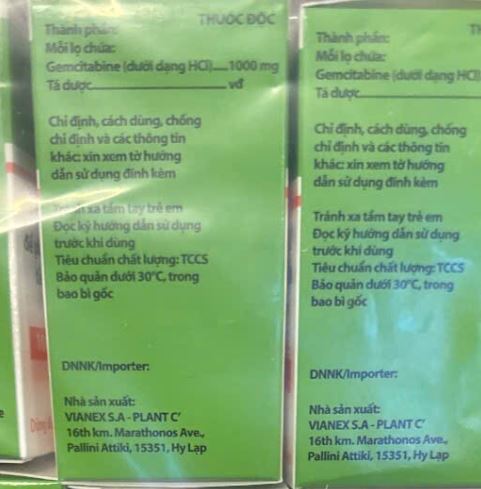 THUỐC ĐỘC
Thành phần:
Mỗi lọ chứa:
Gemcitabine (dưới dạng HCl)....1000 mg
Tá dược................................vđ
Chỉ định, cách dùng, chống
chỉ định và các thông tin
khác: xin xem tờ hướng
dẫn sử dụng đính kèm
Tránh xa tầm tay trẻ em
Đọc kỹ hướng dẫn sử dụng
trước khi dùng
Tiêu chuẩn chất lượng: TCCS
Bảo quản dưới 30°C, trong
bao bì gốc
DNNK/Importer:
Nhà sản xuất:
VIANEX S.A - PLANT C'
16th km. Marathonos Ave.,
Pallini Attiki, 15351, Hy Lạp
Thành phần:
Mỗi lọ chứa:
Gemcitabine (dưới dạng HCl)
Tá dược
Chỉ định, cách dùng, chống
chỉ định và các thông tin
khác: xin xem tờ hướng
dẫn sử dụng đính kèm
Tránh xa tầm tay trẻ em
Đọc kỹ hướng dẫn sử dụng
trước khi dùng
Tiêu chuẩn chất lượng: TCCS
Bảo quản dưới 30°C, trong
bao bì gốc
DNNK/Importer:
Nhà sản xuất:
VIANEX S.A - PLANT C'
16th km. Marathonos Ave.,
Pallini Attiki, 15351, Hy Lạp